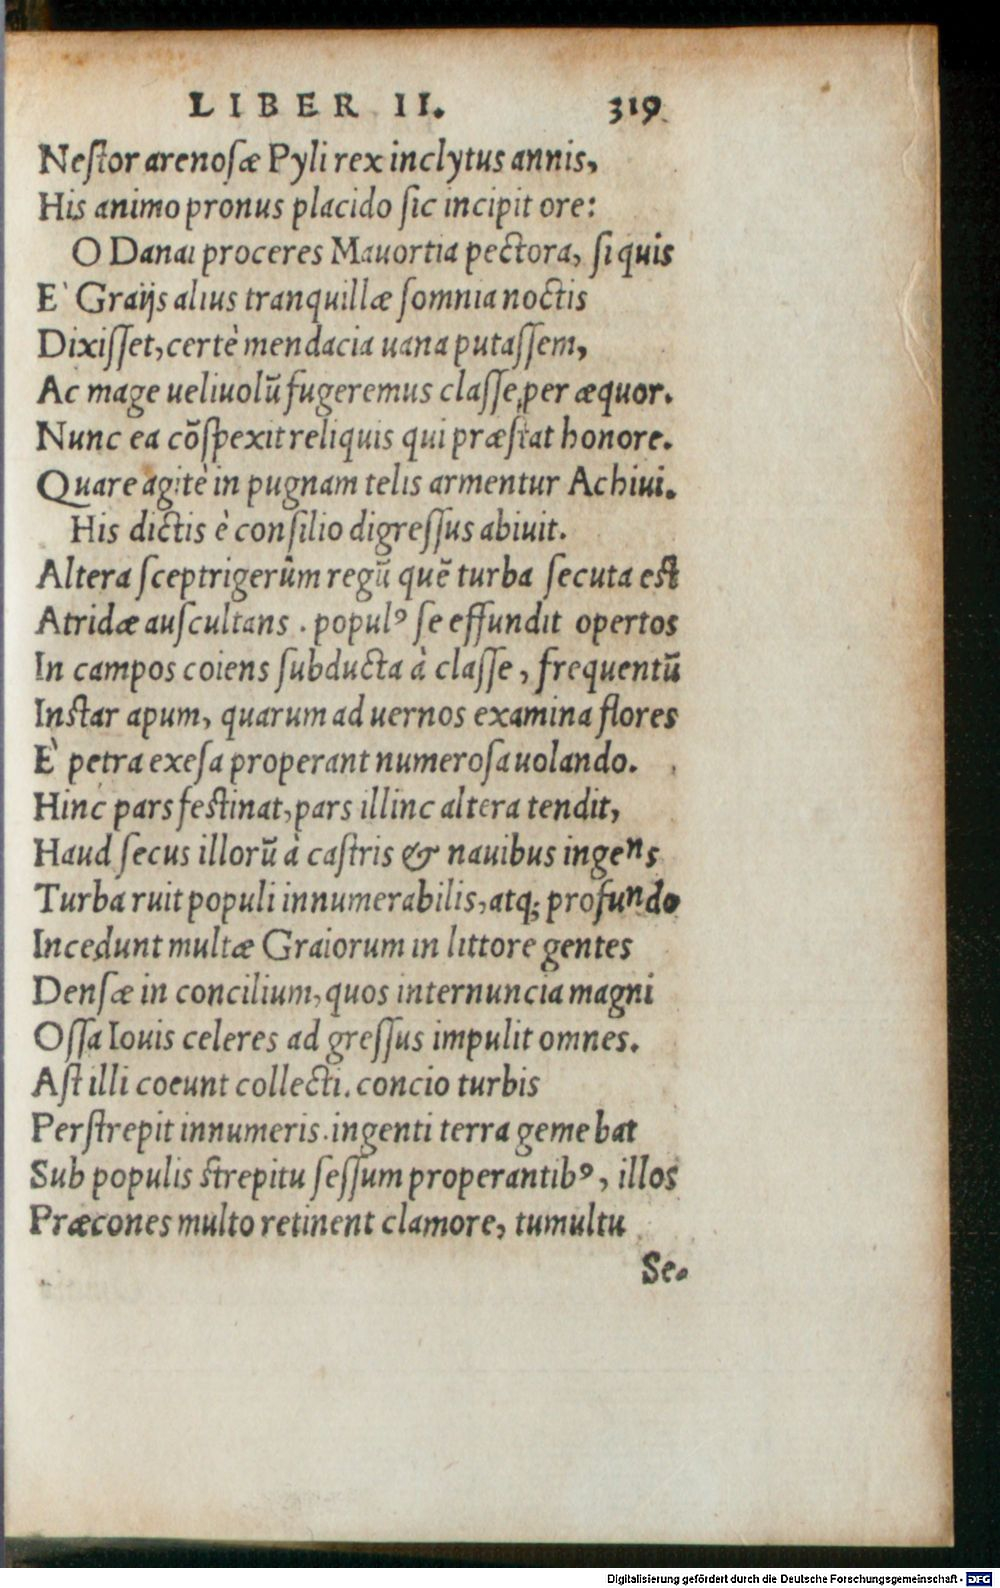 LIBER II. 319
Neſtor arenoſæ Pyli rex inclytus annis,
His animo pronus placido ſic incipit ore:
O Danai proceres Mauortia pectora, ſi quis
E` Graijs alius tranquillæ ſomnia noctis
Dixiſſet, certè mendacia uana putaſſem,
Ac mage ueliuolũ fugeremus claſſe per æquor.
Nunc ea cõſpexit reliquis qui præſtat honore.
Quare agitè in pugnam telis armentur Achiui.
His dictis è conſilio digreſſus abiuit.
Altera ſceptrigerûm regũ quẽ turba ſecuta eſt
Atridæ auſcultans . populꝰ ſe effundit opertos
In campos coiens ſubducta à claſſe, frequentũ
Inſtar apum, quarum ad uernos examina flores
E` petra exeſa properant numeroſa uolando.
Hinc pars feſtinat, pars illinc altera tendit,
Haud ſecus illorũ à caſtris & nauibus ingens
Turba ruit populi innumerabilis, atq; profundo
Incedunt multæ Graiorum in littore gentes
Denſæ in concilium, quos internuncia magni
Oſſa Iouis celeres ad greſſus impulit omnes.
Aſt illi coeunt collecti. concio turbis
Perſtrepit innumeris. ingenti terra gemebat
Sub populis ſtrepitu ſeſſum properantibꝰ, illos
Præcones multo retinent clamore, tumultu
Se-
Digitalisierung gefördert durch die Deutsche Forschungsgemeinschaft - DFG